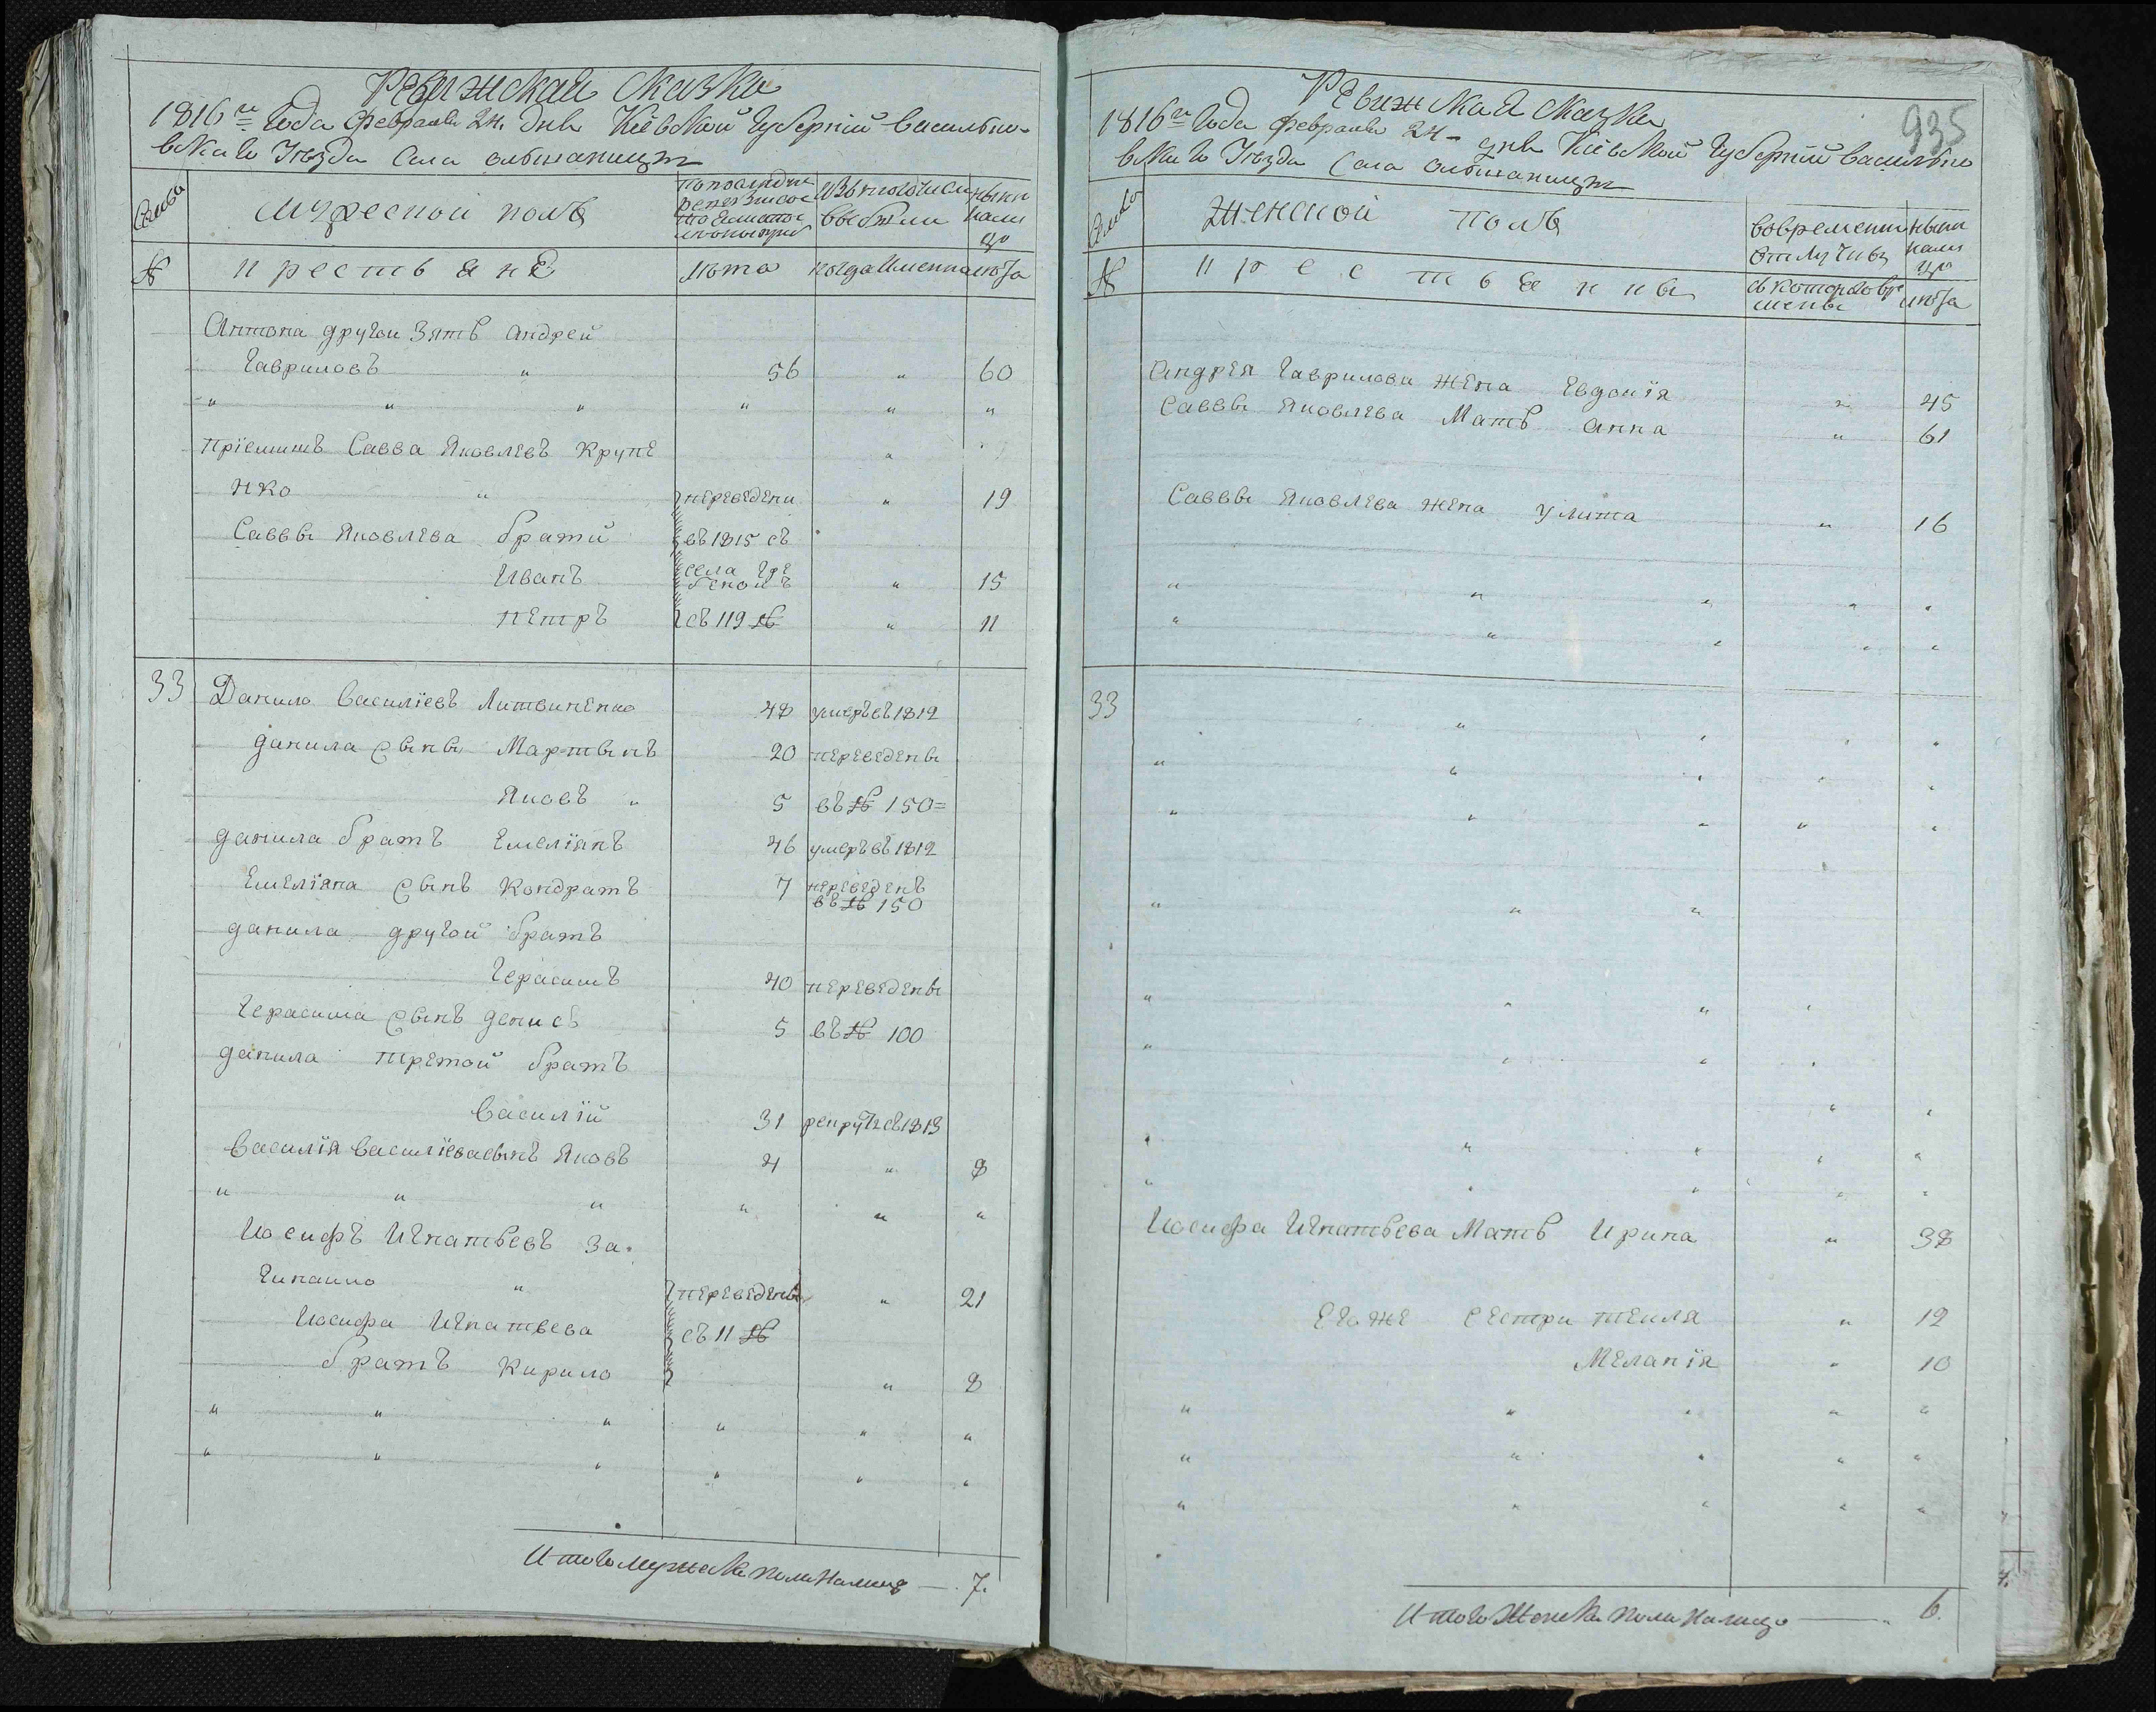 Ревижская сказка
1816го Года Февраля 24 дня Кіевской Губерніи Василько-
вскаго Уѣзда Села Ольшаници
Семьи
Мужеской полъ
По последней ревизіи состояло и после прибыло
Изъ того числа выбыли
Ныне налицо
№
крестьяне
лѣта
когда именно
лѣта
Антона другои зять андрей
Гавриловъ " 56 " 60
" " " " " "
Пріемишъ Савва Яковлевъ Крупе
нко " переведени " 19
Саввы Яковлева братй въ 1815 съ
Иванъ села Гре беномъ " 15
Петръ съ 119 № " 11
33 Данило Василіевъ Литвиненко 48 умеръ въ 1812
данила сыны Мартынъ 20 переведены
Яковъ " 5 въ № 150=
данила братъ Емеліянъ 46 умеръ въ 1812
Емеліяна сынъ Кондратъ 7 переведенъ
въ № 150
данила другой братъ
Герасимъ 40 переведены
Герасима сынъ денисъ 5 въ № 100
данила третой братъ
Василій 31 рекрутъ въ 1813
Василія Василіева сынъ Яковъ 4 " 8
" " " " " "
Иосифъ Игнатьевъ За-
гипайло " переведены " 21
Иосифа Игнатьева съ 11 №
братъ Кирило " 8
" " " " " "
" " " " " "
Итого мужеска пола налицо — 7.
935
Ревижская сказка
1816го Года Февраля 24 - дня Кіевской Губерніи Василько
вскаго Уѣзда Села Ольшаници
Семьи
Женской полъ
Вовременной отлучки
Ныне налицо
№
крестьянки
съ котораго времены
лѣта
Андрея Гаврилова жена Евдокія " 45
Саввы Яковлева Мать анна " 61
Саввы Яковлева жена улита " 16
" " " " "
" " " " "
33 " " " "
" " " " "
" " " " "
" " "
" " " "
" " " "
" "
" " " " "
" " " " "
Иосифа Игнатьева Мать Ирина " 38
Его же сестри текля " 12
Меланія " 10
" " " " "
" " " " "
" " " " "
Итого Женска пола налицо — 6.